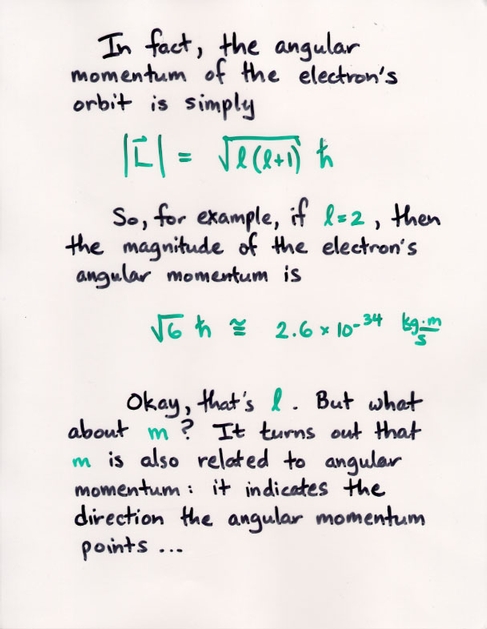 In fact, the angular
momentum of the electron's
orbit is simply
|L⃗| = √ℓ(ℓ+1) ħ
So, for example, if ℓ=2, then
the magnitude of the electron's
angular momentum is
√6 ħ ≅ 2.6 × 10⁻³⁴ kg·m/s
Okay, that's ℓ. But what
about m? It turns out that
m is also related to angular
momentum: it indicates the
direction the angular momentum
points ...